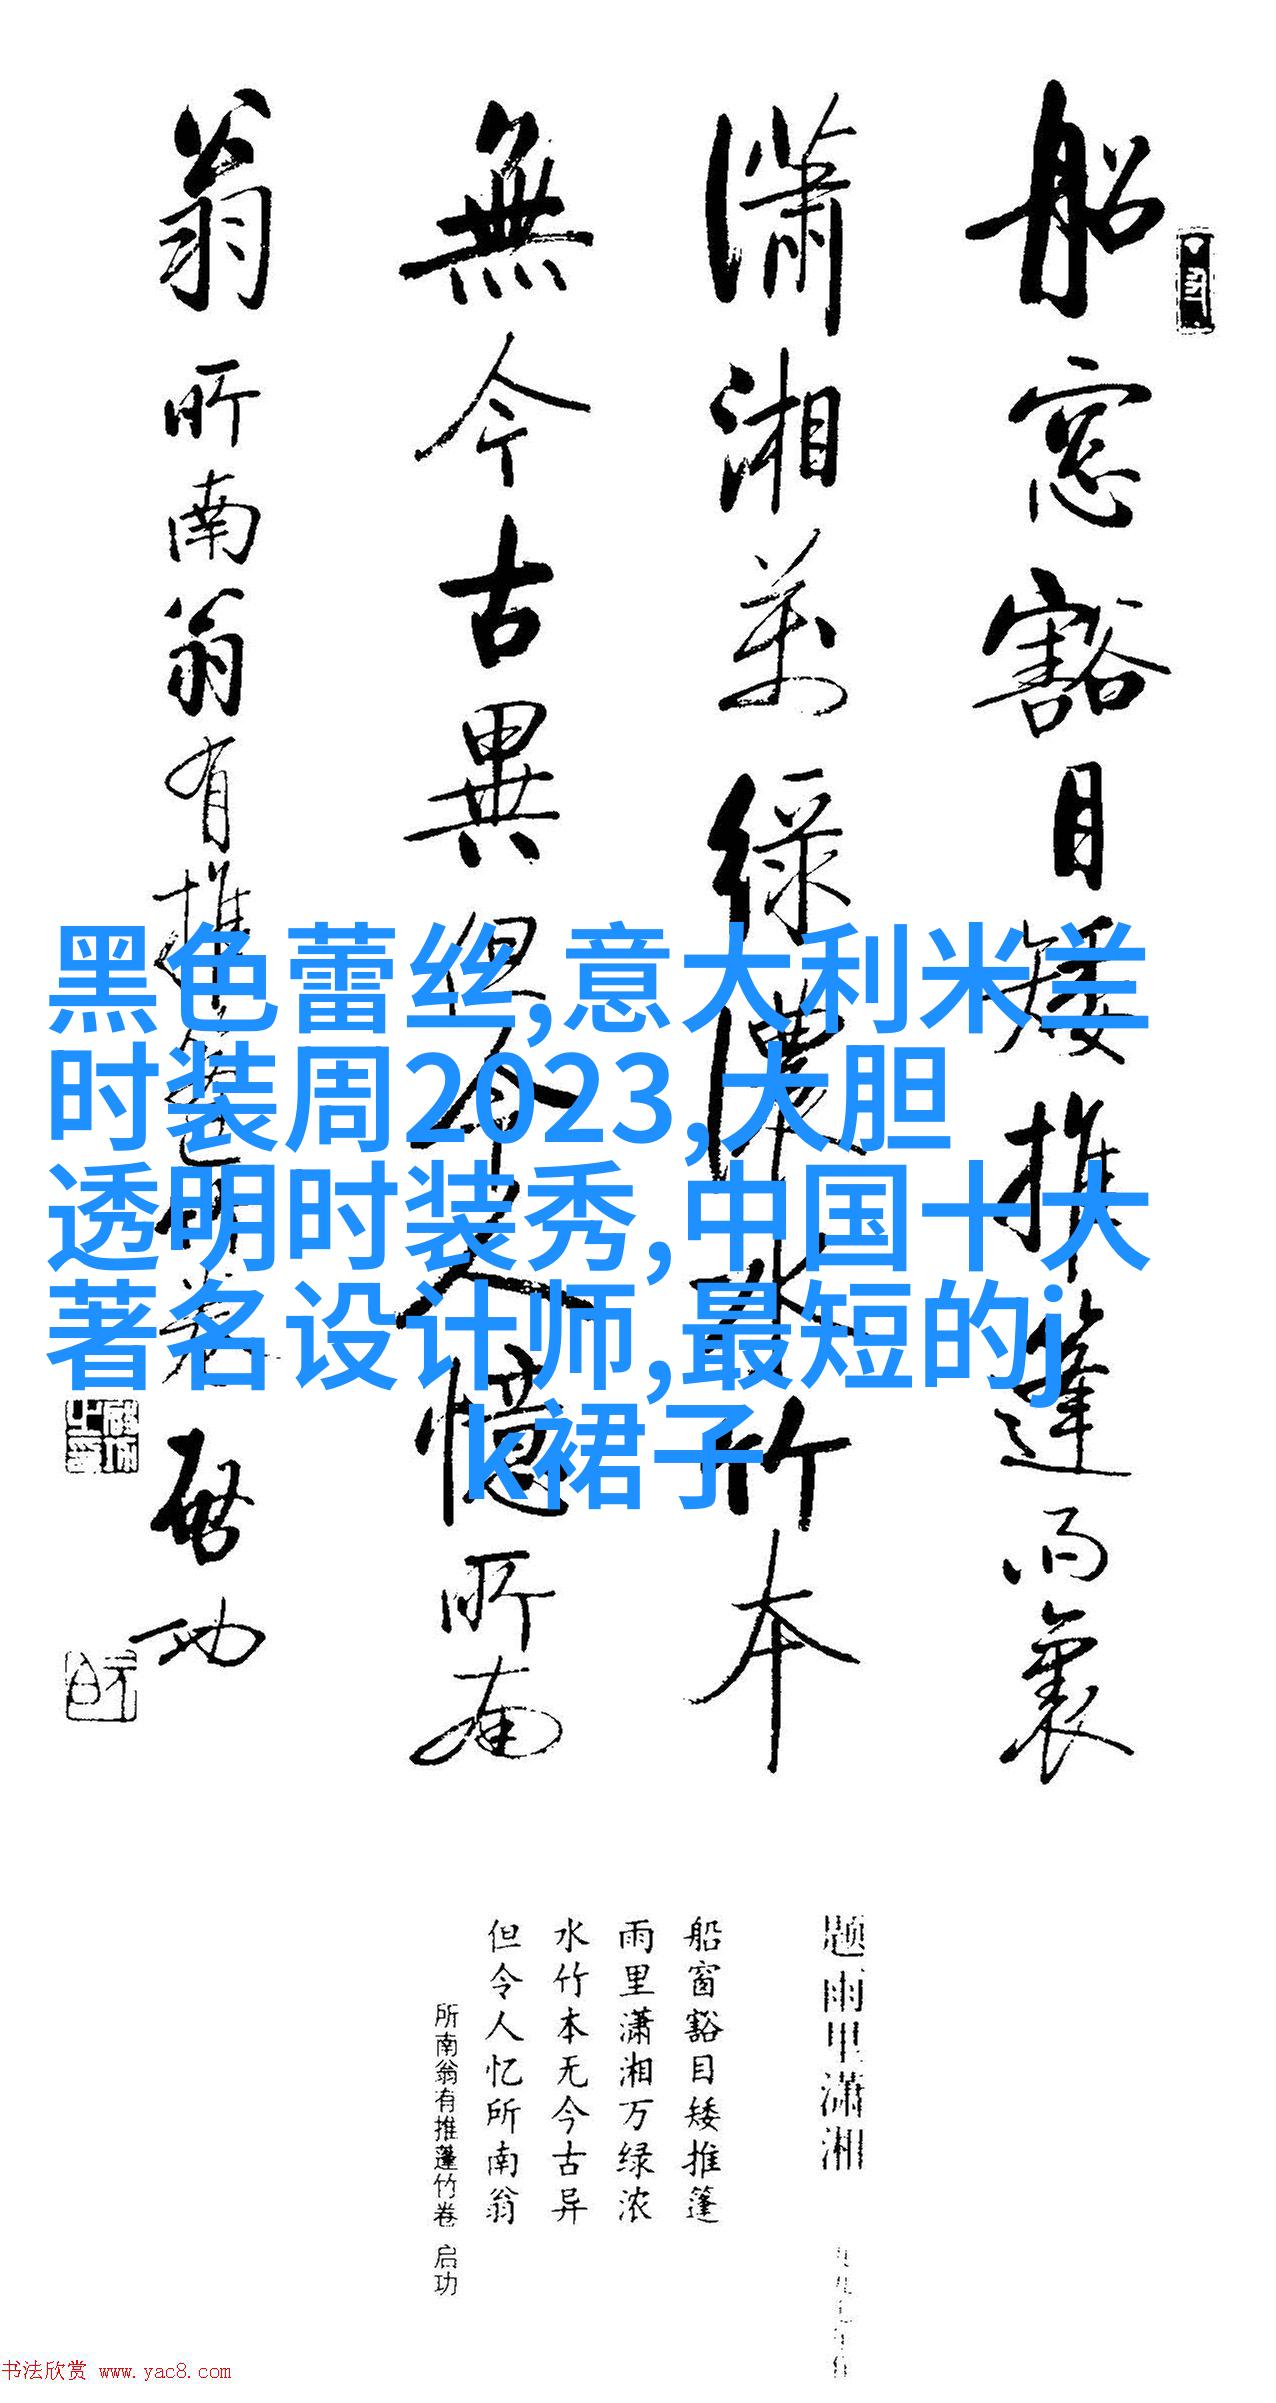 船窓豁目矮推篷雨裏
瀟湘萬緑濃水竹本
無今古異但令人憶所南
翁 所南翁有推篷竹卷 启功
黑色蕾丝,意大利米兰
时装周2023,大胆
透明时装秀,中国十大
著名设计师,最短的j
k裙子
题雨里潇湘
船窗豁目矮推篷
雨里潇湘万绿浓
水竹本无今古异
但令人忆所南翁
所南翁有推蓬竹卷 启功
书法欣赏 www.yac8.com